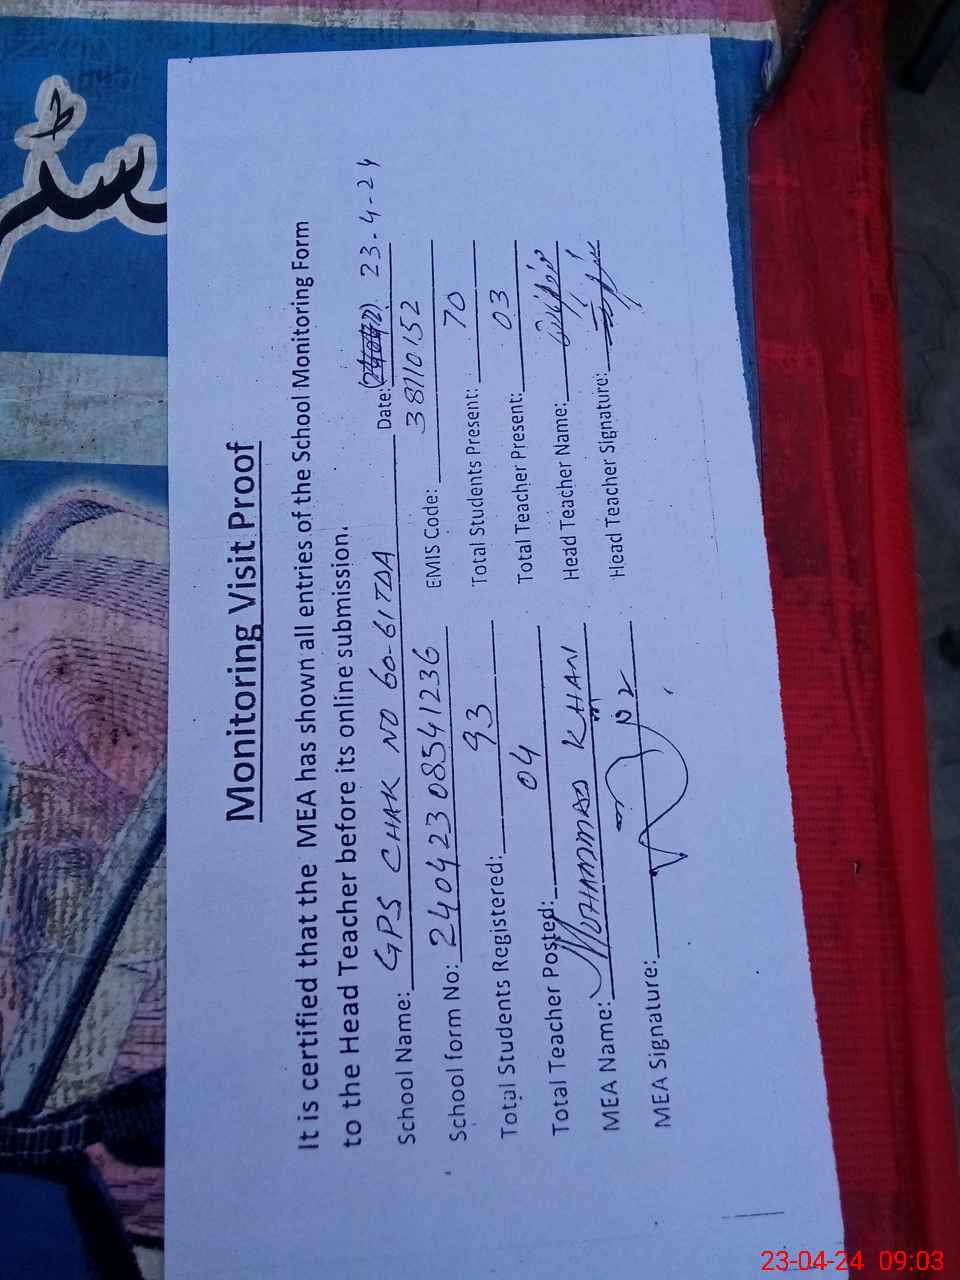 سٹر
Monitoring Visit Proof
It is certified that the MEA has shown all entries of the School Monitoring Form
to the Head Teacher before its online submission.
School Name: GPS CHAK NO 60-61 TDA Date: 23-4-24
School form No: 24042308541236 EMIS Code: 38110152
Total Students Registered: 93 Total Students Present: 70
Total Teacher Posted: 04 Total Teacher Present: 03
MEA Name: MUHAMMAD KHAN Head Teacher Name:
MEA Signature: Head Teacher Signature:
23-04-24 09:03